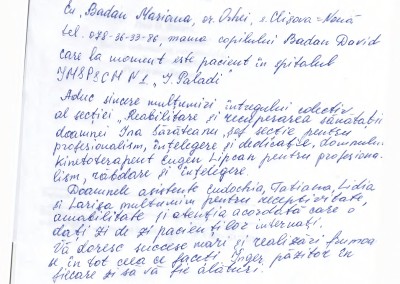 Eu, Badan Mariana, or. Orhei, s. Clișova-Nouă
tel. 078-36-33-86, mama copilului Badan David
care la moment este pacient în spitalul
IMSPSCM N1 „V. Ignatenco”
Aduc sincere mulțumiri întregului colectiv
al secției „Reabilitare și recuperarea sănătății
doamnei Ina Sărăteanu, șef secție pentru
profesionalism, înțelegere și dedicație, domnului
kinetoterapeut Eugen Lipcan pentru profesiona-
lism, răbdare și înțelegere.
Doamnele asistente Eudochia, Tatiana, Lidia
și Larisa mulțumim pentru receptivitate,
amabilitate și atenția acordată care o
dați zi de zi pacienților internați.
Vă doresc succese mari și realizări frumoa
se, în tot ceea ce faceți. Înger păzitor în
fiecare zi să vă fie alături.